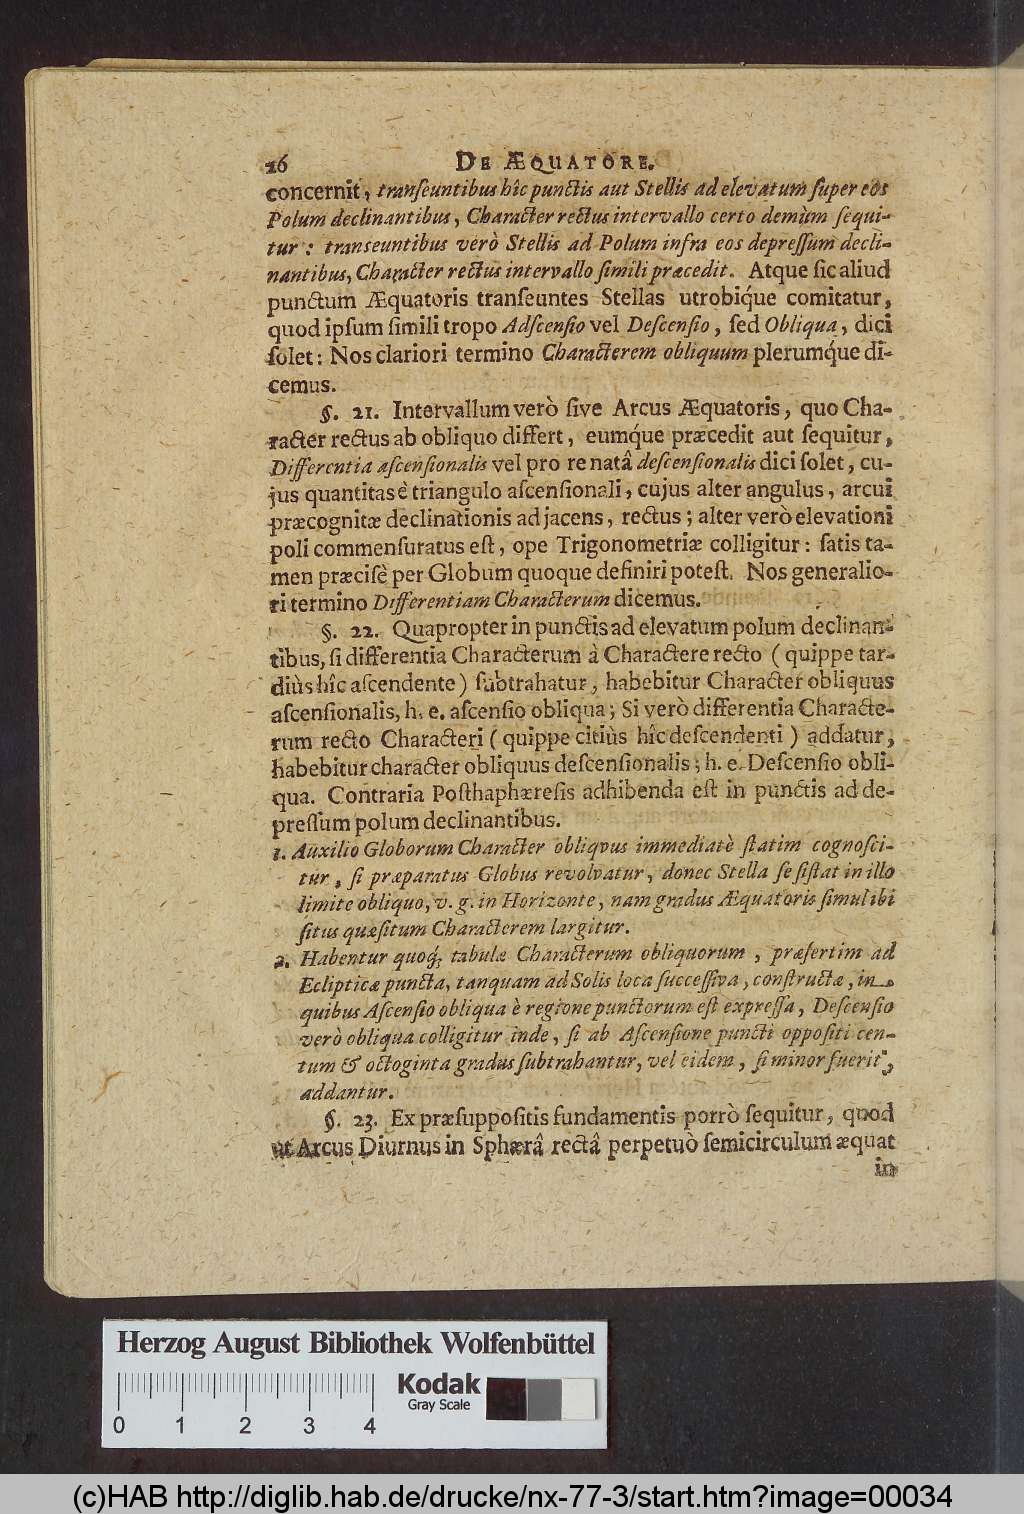 26 DE ÆQUATORE.
concernit, tranſeuntibus hîc punctis aut Stellis ad elevatum ſuper eos
Polum declinantibus, Character rectus intervallo certo demum ſequi-
tur: transeuntibus verò Stellis ad Polum infra eos depreſſum decli-
nantibus, Character rectus intervallo ſimili præcedit. Atque ſic aliud
punctum Æquatoris tranſeuntes Stellas utrobiq́ue comitatur,
quod ipſum ſimili tropo Adſcenſio vel Deſcenſio, ſed Obliqua, dici
ſolet: Nos clariori termino Characterem obliquum plerumq́ue di-
cemus.
§. 21. Intervallum verò ſive Arcus Æquatoris, quo Cha-
racter rectus ab obliquo differt, eumq́ue præcedit aut ſequitur,
Differentia aſcenſionalis vel pro re natâ deſcenſionalis dici ſolet, cu-
jus quantitas è triangulo aſcenſionali, cujus alter angulus, arcui
præcognitæ declinationis adjacens, rectus; alter verò elevationi
poli commenſuratus eſt, ope Trigonometriæ colligitur: ſatis ta-
men præciſè per Globum quoque definiri poteſt. Nos generalio-
ri termino Differentiam Characterum dicemus.
§. 22. Quapropter in punctis ad elevatum polum declinan-
tibus, ſi differentia Characterum à Charactere recto (quippe tar-
diùs hîc aſcendente) ſubtrahatur, habebitur Character obliquus
aſcenſionalis, h. e. aſcenſio obliqua; Si verò differentia Characte-
rum recto Characteri (quippe citiùs hîc deſcendenti) addatur,
habebitur character obliquus deſcenſionalis; h. e. Deſcenſio obli-
qua. Contraria Poſthaphæreſis adhibenda eſt in punctis ad de-
preſſum polum declinantibus.
1. Auxilio Globorum Character obliqvus immediatè ſtatim cognoſci-
tur, ſi præparatus Globus revolvatur, donec Stella ſe ſiſtat in illo
limite obliquo, v. g. in Horizonte, nam gradus Æquatoris ſimul ibi
ſitus quæſitum Characterem largitur.
2. Habentur quoq́; tabulæ Characterum obliquorum, præſertim ad
Eclipticæ puncta, tanquam ad Solis loca ſucceſſiva, conſtructæ, in
quibus Aſcenſio obliqua è regione punctorum eſt expreſſa, Deſcenſio
verò obliqua colligitur inde, ſi ab Aſcenſione puncti oppoſiti cen-
tum & octoginta gradus ſubtrahantur, vel eidem, ſi minor fuerit,
addantur.
§. 23. Ex præſuppoſitis fundamentis porrò ſequitur, quod
ut Arcus Diurnus in Sphærâ rectâ perpetuò ſemicirculum æquat
in
Herzog August Bibliothek Wolfenbüttel
Kodak
Gray Scale
0 1 2 3 4
(c)HAB http://diglib.hab.de/drucke/nx-77-3/start.htm?image=00034